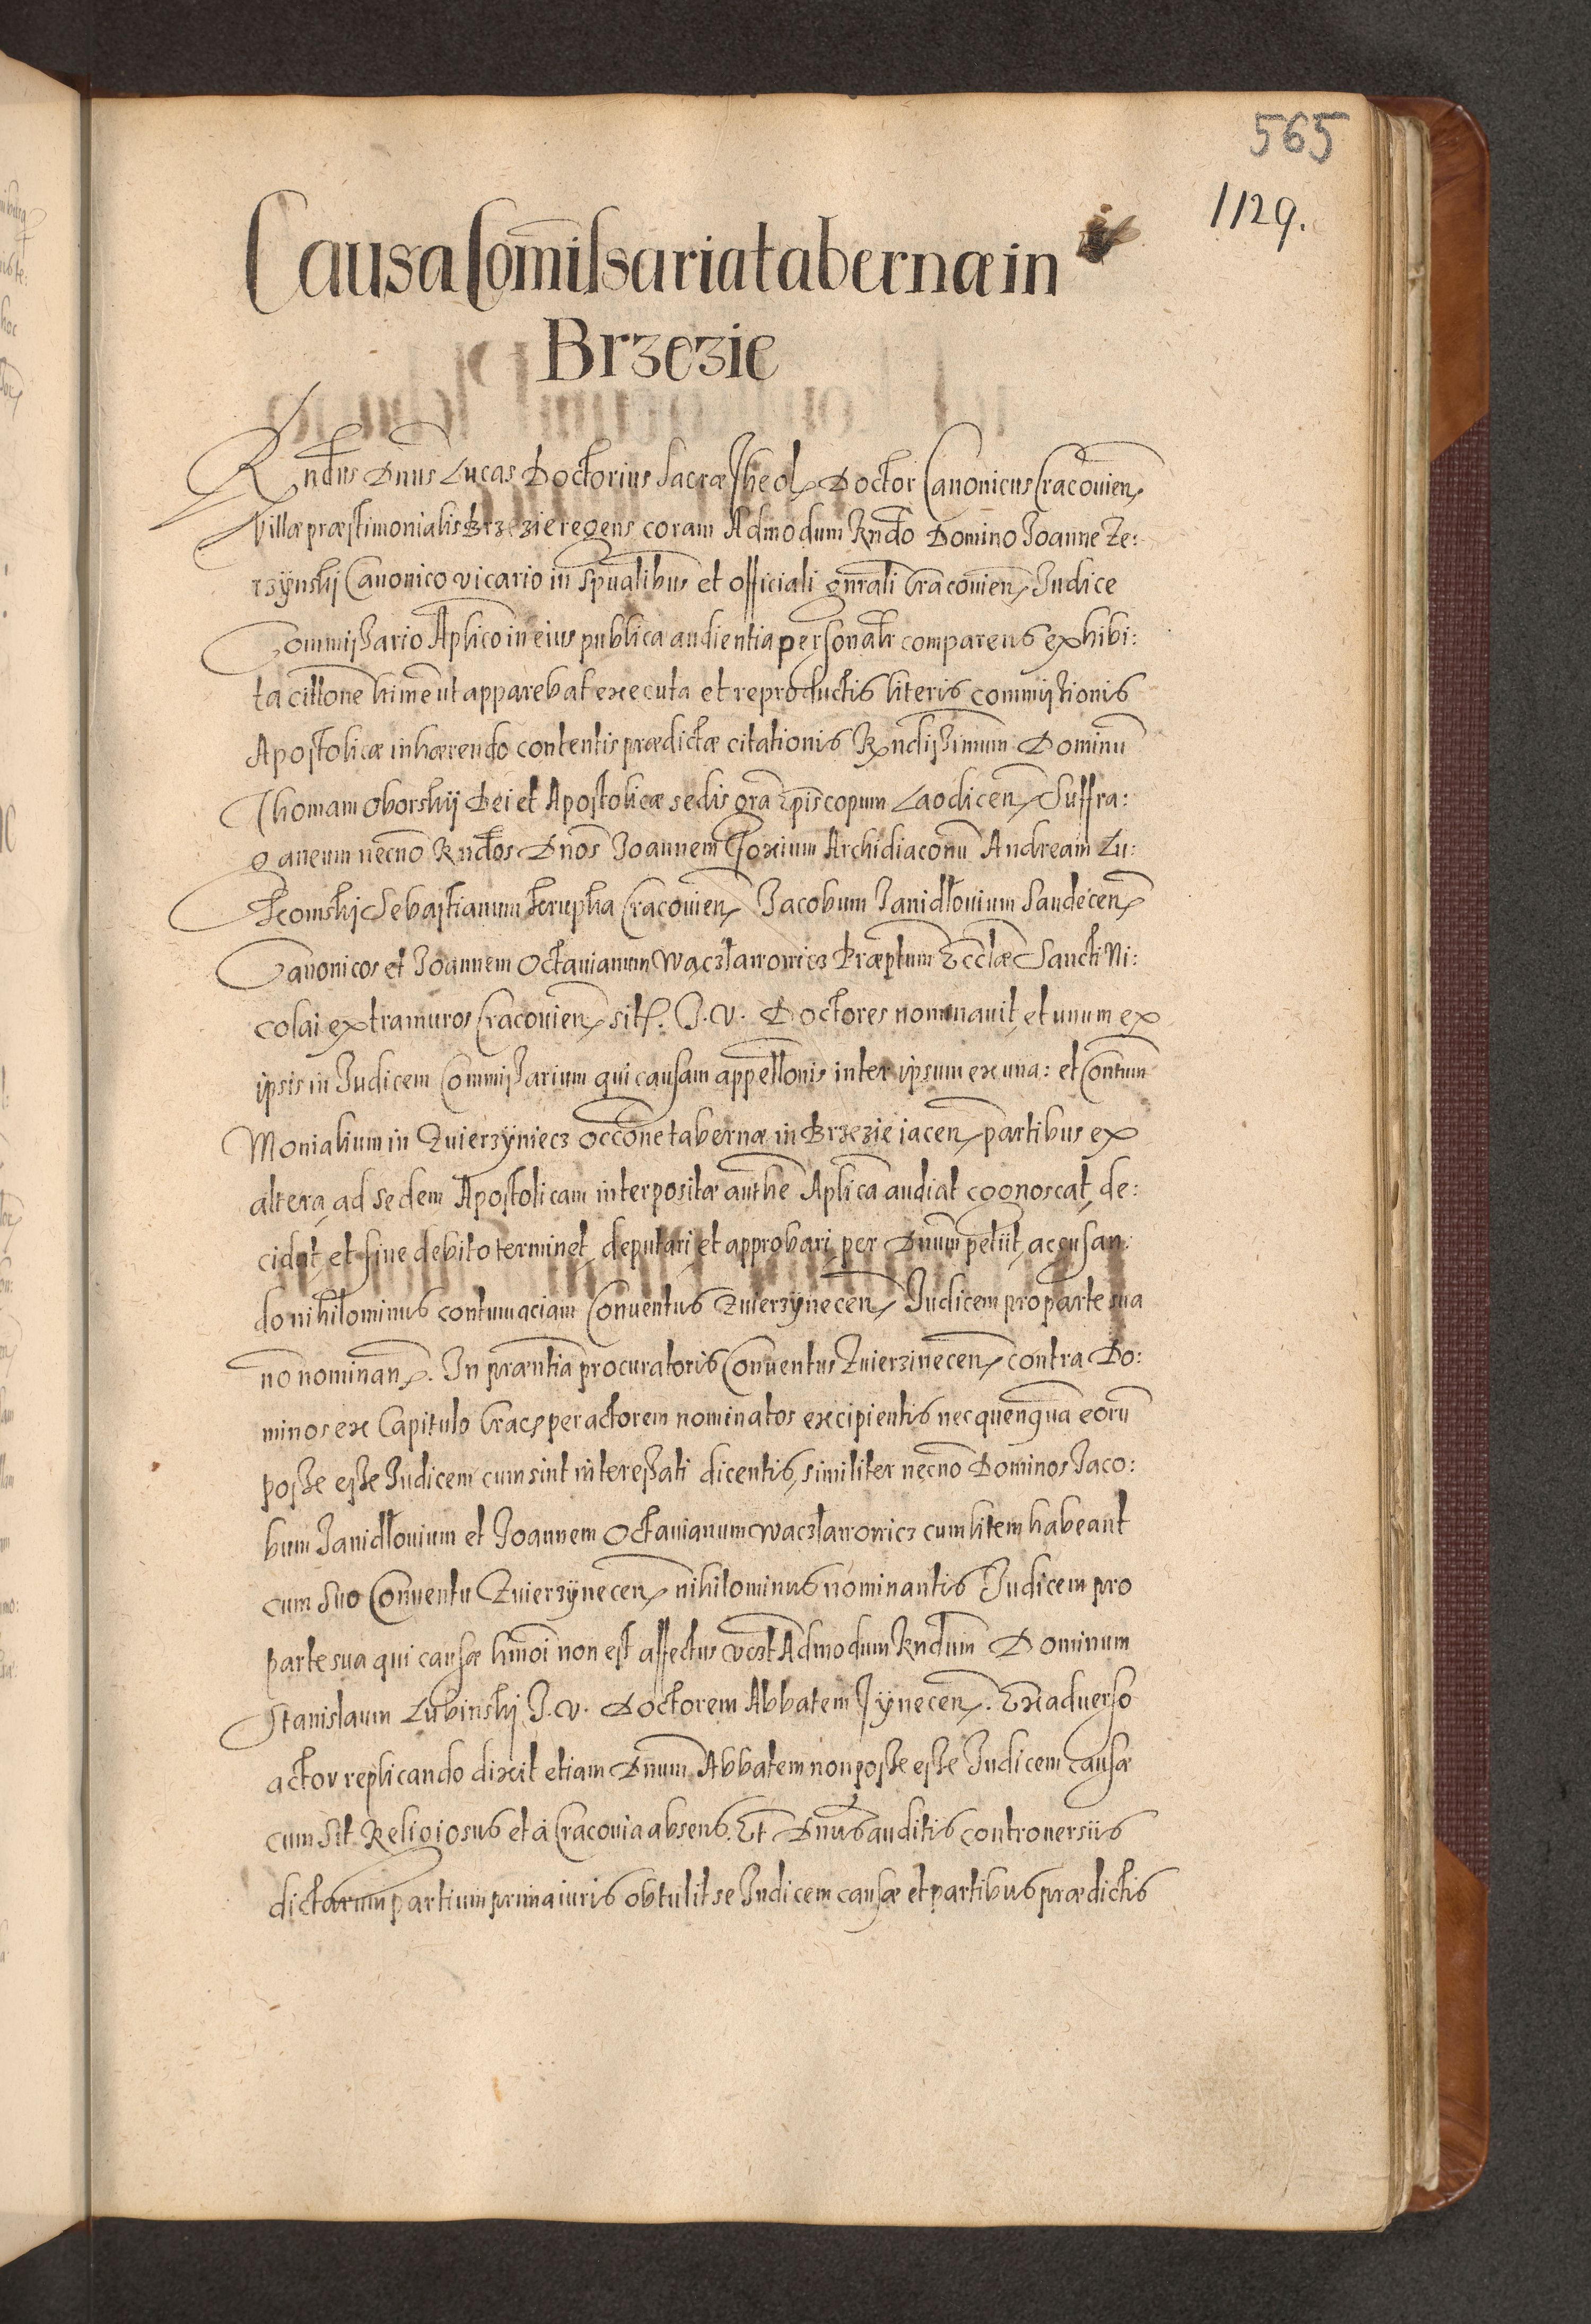 565
1129.
Causa Com̃issaria tabernæ in
Brzezie
Rndus Dnus Lucas Doctorius Sacræ Theol. Doctor Canonicus Cracouien.
Villæ præstimonialis Brzezie regens coram Admodum Rndo Domino Joanne Ze:
rzÿnskj Canonico vicario in Sp̃ualibus et officiali gnrali Cracouien. Judice
Commissario Aplico in eius publica audientia personalr comparens exhibi:
ta cit̃tone hm̃e ut apparebat executa et reproductis literis commissionis
Apostolicæ inhærendo contentis prædictæ citationis Rndissimum Dominũ
Thomam Oborskij Dei et Apostolicæ sedis gr̃a Ep̃iscopum Laodicen. Suffra:
ganeum necnõ Rndos Dnos Joannem Foxium Archidiaconũ Andream Lu:
komskj Sebastianum Krupka Cracouien. Jacobum Janidlouium Sandecen.
Canonicos et Joannem Octauianum Wączlawowicz Præp̃tum Eccl̃æ Sancti Ni:
colai extra muros Cracouien. sit. J. V. Doctores nominauit, et unum ex
ipsis in Judicem Commissarium qui causam appel̃lonis inter ipsum ex una: et Conuen̄tum
Monialium in Zuierzÿniecz occõne tabernæ in Brzezie iacen. partibus ex
altera, ad sedem Apostolicam interpositæ aut̃he Aplica audiat cognoscat, de:
cidat, et fine debito terminet, deputari et approbari per Dnum petiit, accusan:
do nihilominus contumaciam Conuentus Zuierzÿnecen. Judicem pro parte sua
nõ nominan. In præntia procuratoris Conuentus Zuierzinecen. contra Do:
minos ex Capitulo Crac. per actorem nominatos excipientis nec quenquã eorũ
posse esse Judicem cum sint interessati dicentis, similiter necnõ Dominos Jaco:
bum Janidlouium et Joannem Octauianum Waczlawowicz cum litem habeant
cum suo Conuentu Zuierzÿnecen. nihilominus nominantis Judicem pro
parte sua qui causæ hmõi non est affectus vc̃t Admodum Rndum Dominum
Stanislaum Lubinskj J. V. Doctorem Abbatem Tÿnecen. Ex aduerso
actor replicando dixit etiam Dnum Abbatem non posse esse Judicem causæ
cum sit Religiosus et à Cracouia absens. Et Dnus auditis controuersiis
dictarum partium prima iuris obtulit se Judicem causæ et partibus prædictis